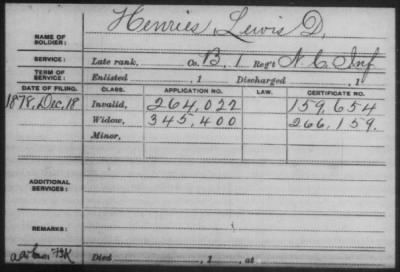 NAME OF SOLDIER: Henries, Lewis D.
SERVICE: Late rank, Co. B, 1 Reg't N.C. Inf
TERM OF SERVICE: Enlisted , 1 Discharged , 1
DATE OF FILING. CLASS. APPLICATION NO. LAW. CERTIFICATE NO.
1878, Dec, 18 Invalid, 264,022 159,654
Widow, 345,400 266,159.
Minor,
ADDITIONAL SERVICES:
REMARKS:
Died , 1 , at